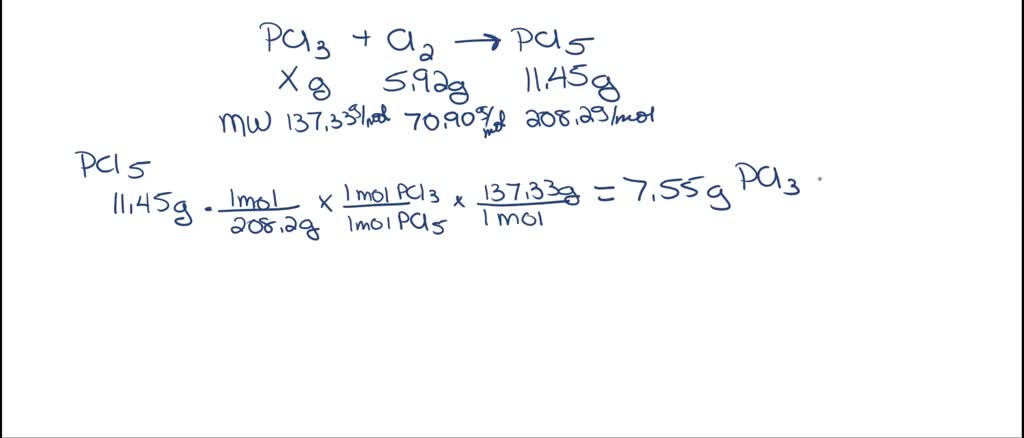 PCl3 + Cl2 → PCl5
X g 5.92g 11.45g
MW 137.33g/mol 70.90g/mol 208.2g/mol
PCl5
11.45g · 1mol/208.2g × 1mol PCl3/1mol PCl5 × 137.33g/1mol = 7.55g PCl3